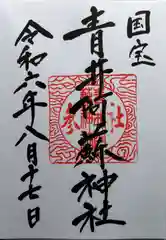 国宝
青井阿蘇神社
令和六年八月十七日